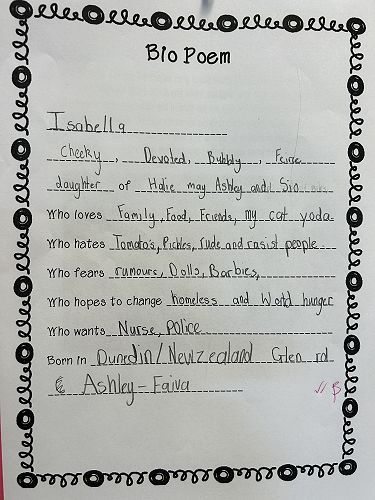 Bio Poem
Isabella
Cheeky, Devoted, Bubbly,
daughter of Halie may Ashley and Sio
Who loves Family, Food, Friends, my cat yoda
Who hates Tomato's, Pickles, rude and rasist people
Who fears rumours, Dolls, Barbies,
Who hopes to change homeless and World hunger
Who wants Nurse, Police
Born in Dunedin/Newzealand Glen rd
Ashley-Faiva